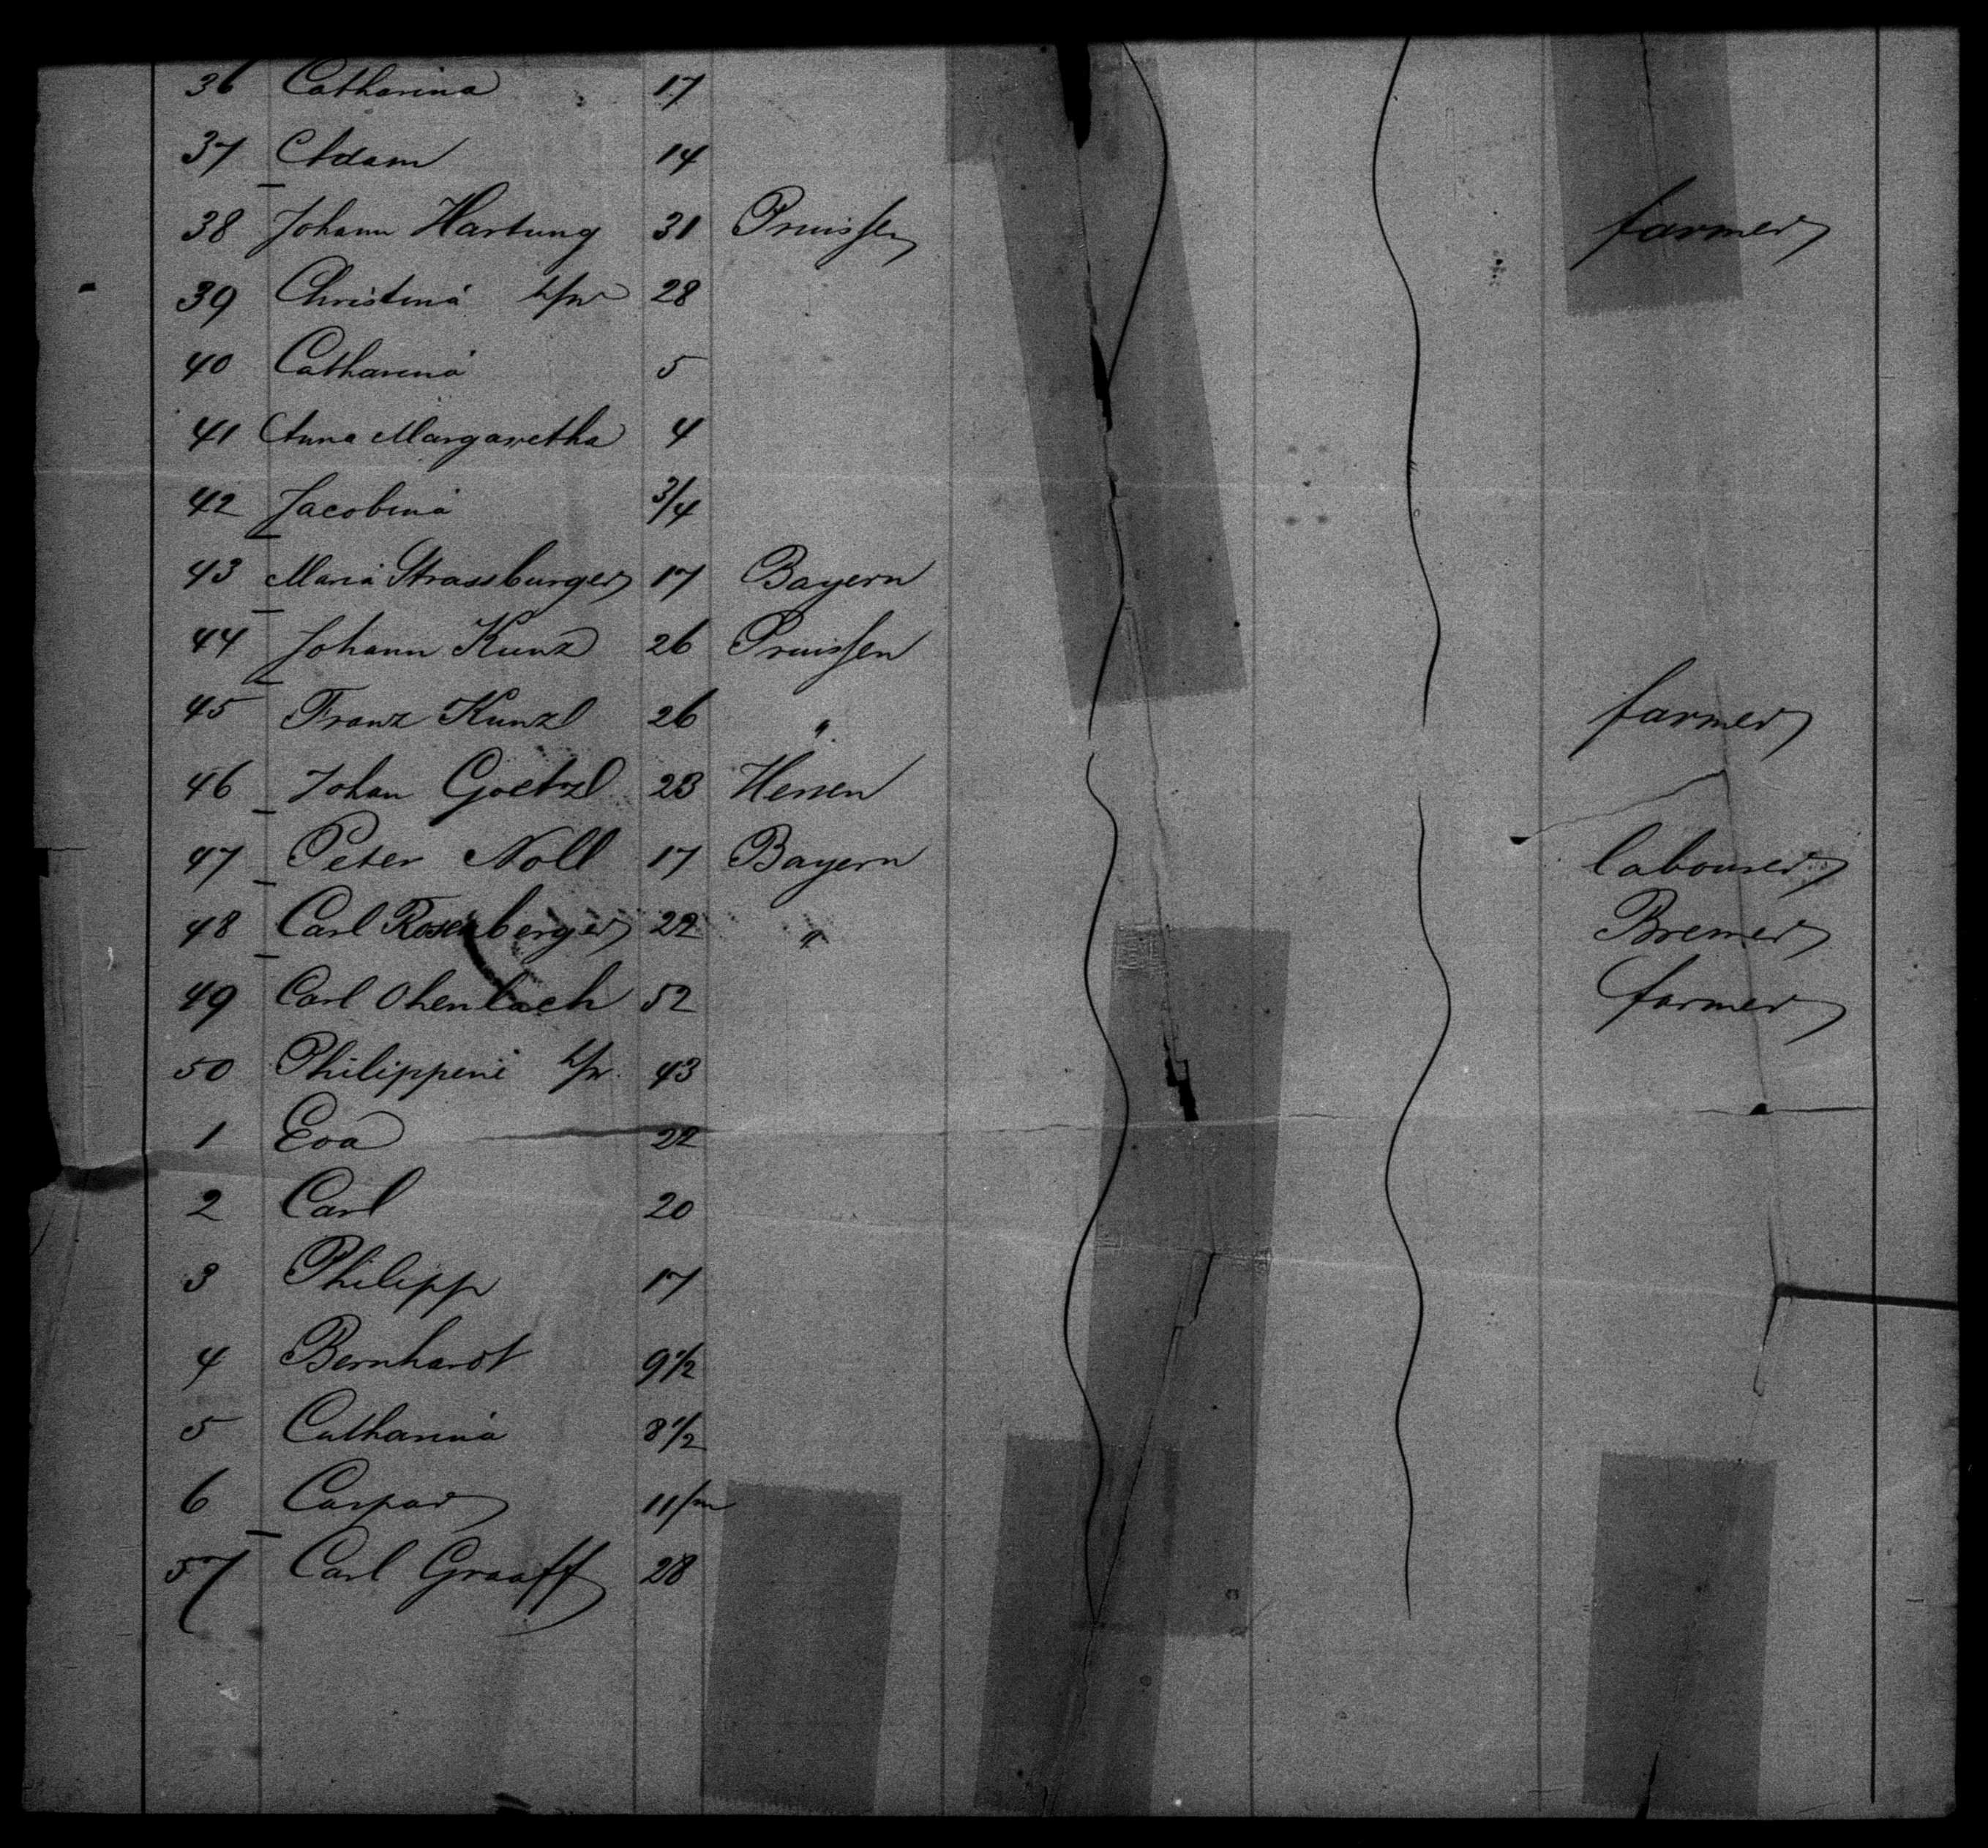 36 Catharina 17
37 Adam 14
38 Johann Hartung 31 Pruissen farmer
39 Christina 28
40 Catharina 5
41 Anna Margaretha 4
42 Jacobina 3/4
43 Maria Strassburger 17 Bayern
44 Johann Kunz 26 Pruissen
45 Franz Kunzl 26 " farmer
46 Johan Goetzl 23 Hessen
47 Peter Noll 17 Bayern labourer
48 Carl Rosenberger 22 " Bremer
49 Carl Ohenlach 52 farmer
50 Philippine 43
1 Eva 22
2 Carl 20
3 Philipp 17
4 Bernhardt 9 1/2
5 Catharina 8 1/2
6 Caspar 11/m
57 Carl Graaff 28